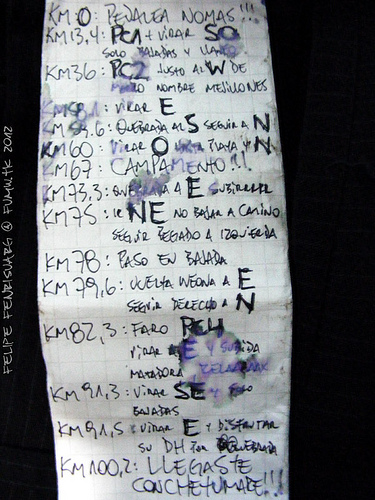 KM 0: PEDALEA NOMAS!!!
KM13,4: PC1 + VIRAR SO
SOLO BAJADAS Y LLANO
KM36: PC2 JUSTO AL W DE
NOMBRE MEJILLONES
KM58,1: VIRAR E
KM 59.6: QUEBRADA AL S SEGUIR A N
KM60: VIRAR O PLAYA Y N
KM67: CAMPAMENTO!!!
KM73,3: QUEBRADA A E SUBIRRRRR
KM75: IR NE NO BAJAR A CAMINO
SEGUIR PEGADO A IZQUIERDA
KM78: PASO EN BAJADA
KM79,6: VUELTA WEONA A E
SEGUIR DERECHO A N
KM82,3: FARO PC4
VIRAR E Y SUBIDA
MATADORA
KM91,3: VIRAR SE Y SOLO
BAJADAS
KM91,5: VIRAR E Y DISFRUTAR
SU DH POR QUEBRADA
KM100,2: LLEGASTE
CONCHETUMARE!!!
FELIPE FENRISVARG @ FUMW.TK 2012